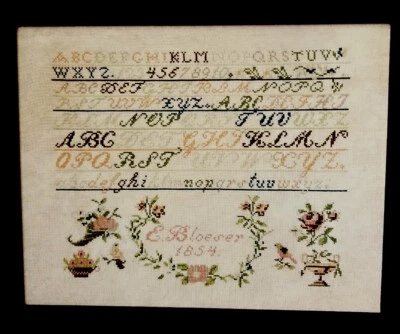 ABCDEFGHIJKLMNOPQRSTUVW
WXYZ. 45678910
ABCDEFGHIKLMNOPQ
RSTUVWXYZ. ABCDEFGHI
KLMNOPQRSTUVWXYZ
ABCDEFGHIKLMN
OPQRSTUVWXYZ.
abcdefghiklmnopqrstuvwxyz.
E. Bloeser
1854.